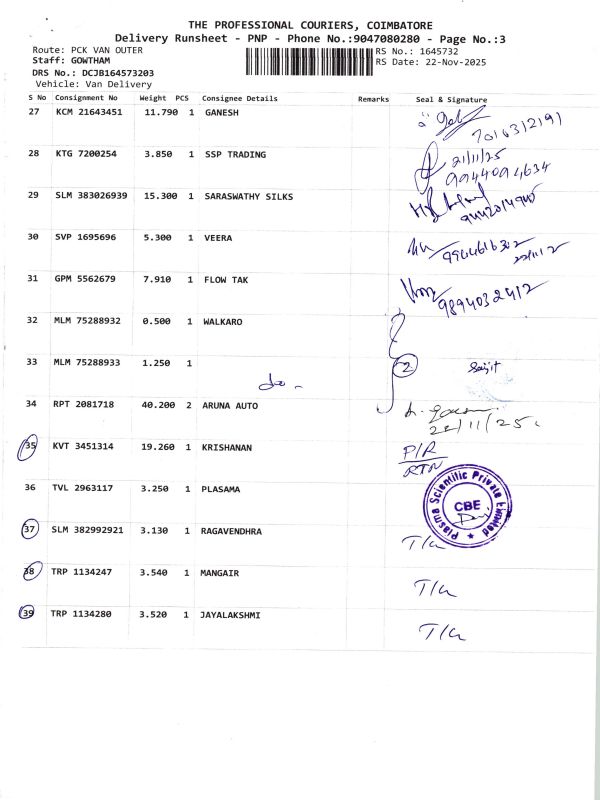 THE PROFESSIONAL COURIERS, COIMBATORE
Delivery Runsheet - PNP - Phone No.:9047080280 - Page No.:3
Route: PCK VAN OUTER
RS No.: 1645732
Staff: GOWTHAM
RS Date: 22-Nov-2025
DRS No.: DCJB164573203
Vehicle: Van Delivery
S No Consignment No Weight PCS Consignee Details Remarks Seal & Signature
27 KCM 21643451 11.790 1 GANESH
7016312191
28 KTG 7200254 3.850 1 SSP TRADING
21/11/25
9944094634
29 SLM 383026939 15.300 1 SARASWATHY SILKS
30 SVP 1695696 5.300 1 VEERA
31 GPM 5562679 7.910 1 FLOW TAK
9894032412
32 MLM 75288932 0.500 1 WALKARO
33 MLM 75288933 1.250 1
do - 2
34 RPT 2081718 40.200 2 ARUNA AUTO
22/11/25.
35 KVT 3451314 19.260 1 KRISHANAN P/R
RTN
36 TVL 2963117 3.250 1 PLASAMA
Plasma Scientific Private Limited
CBE
37 SLM 382992921 3.130 1 RAGAVENDHRA
38 TRP 1134247 3.540 1 MANGAIR
39 TRP 1134280 3.520 1 JAYALAKSHMI